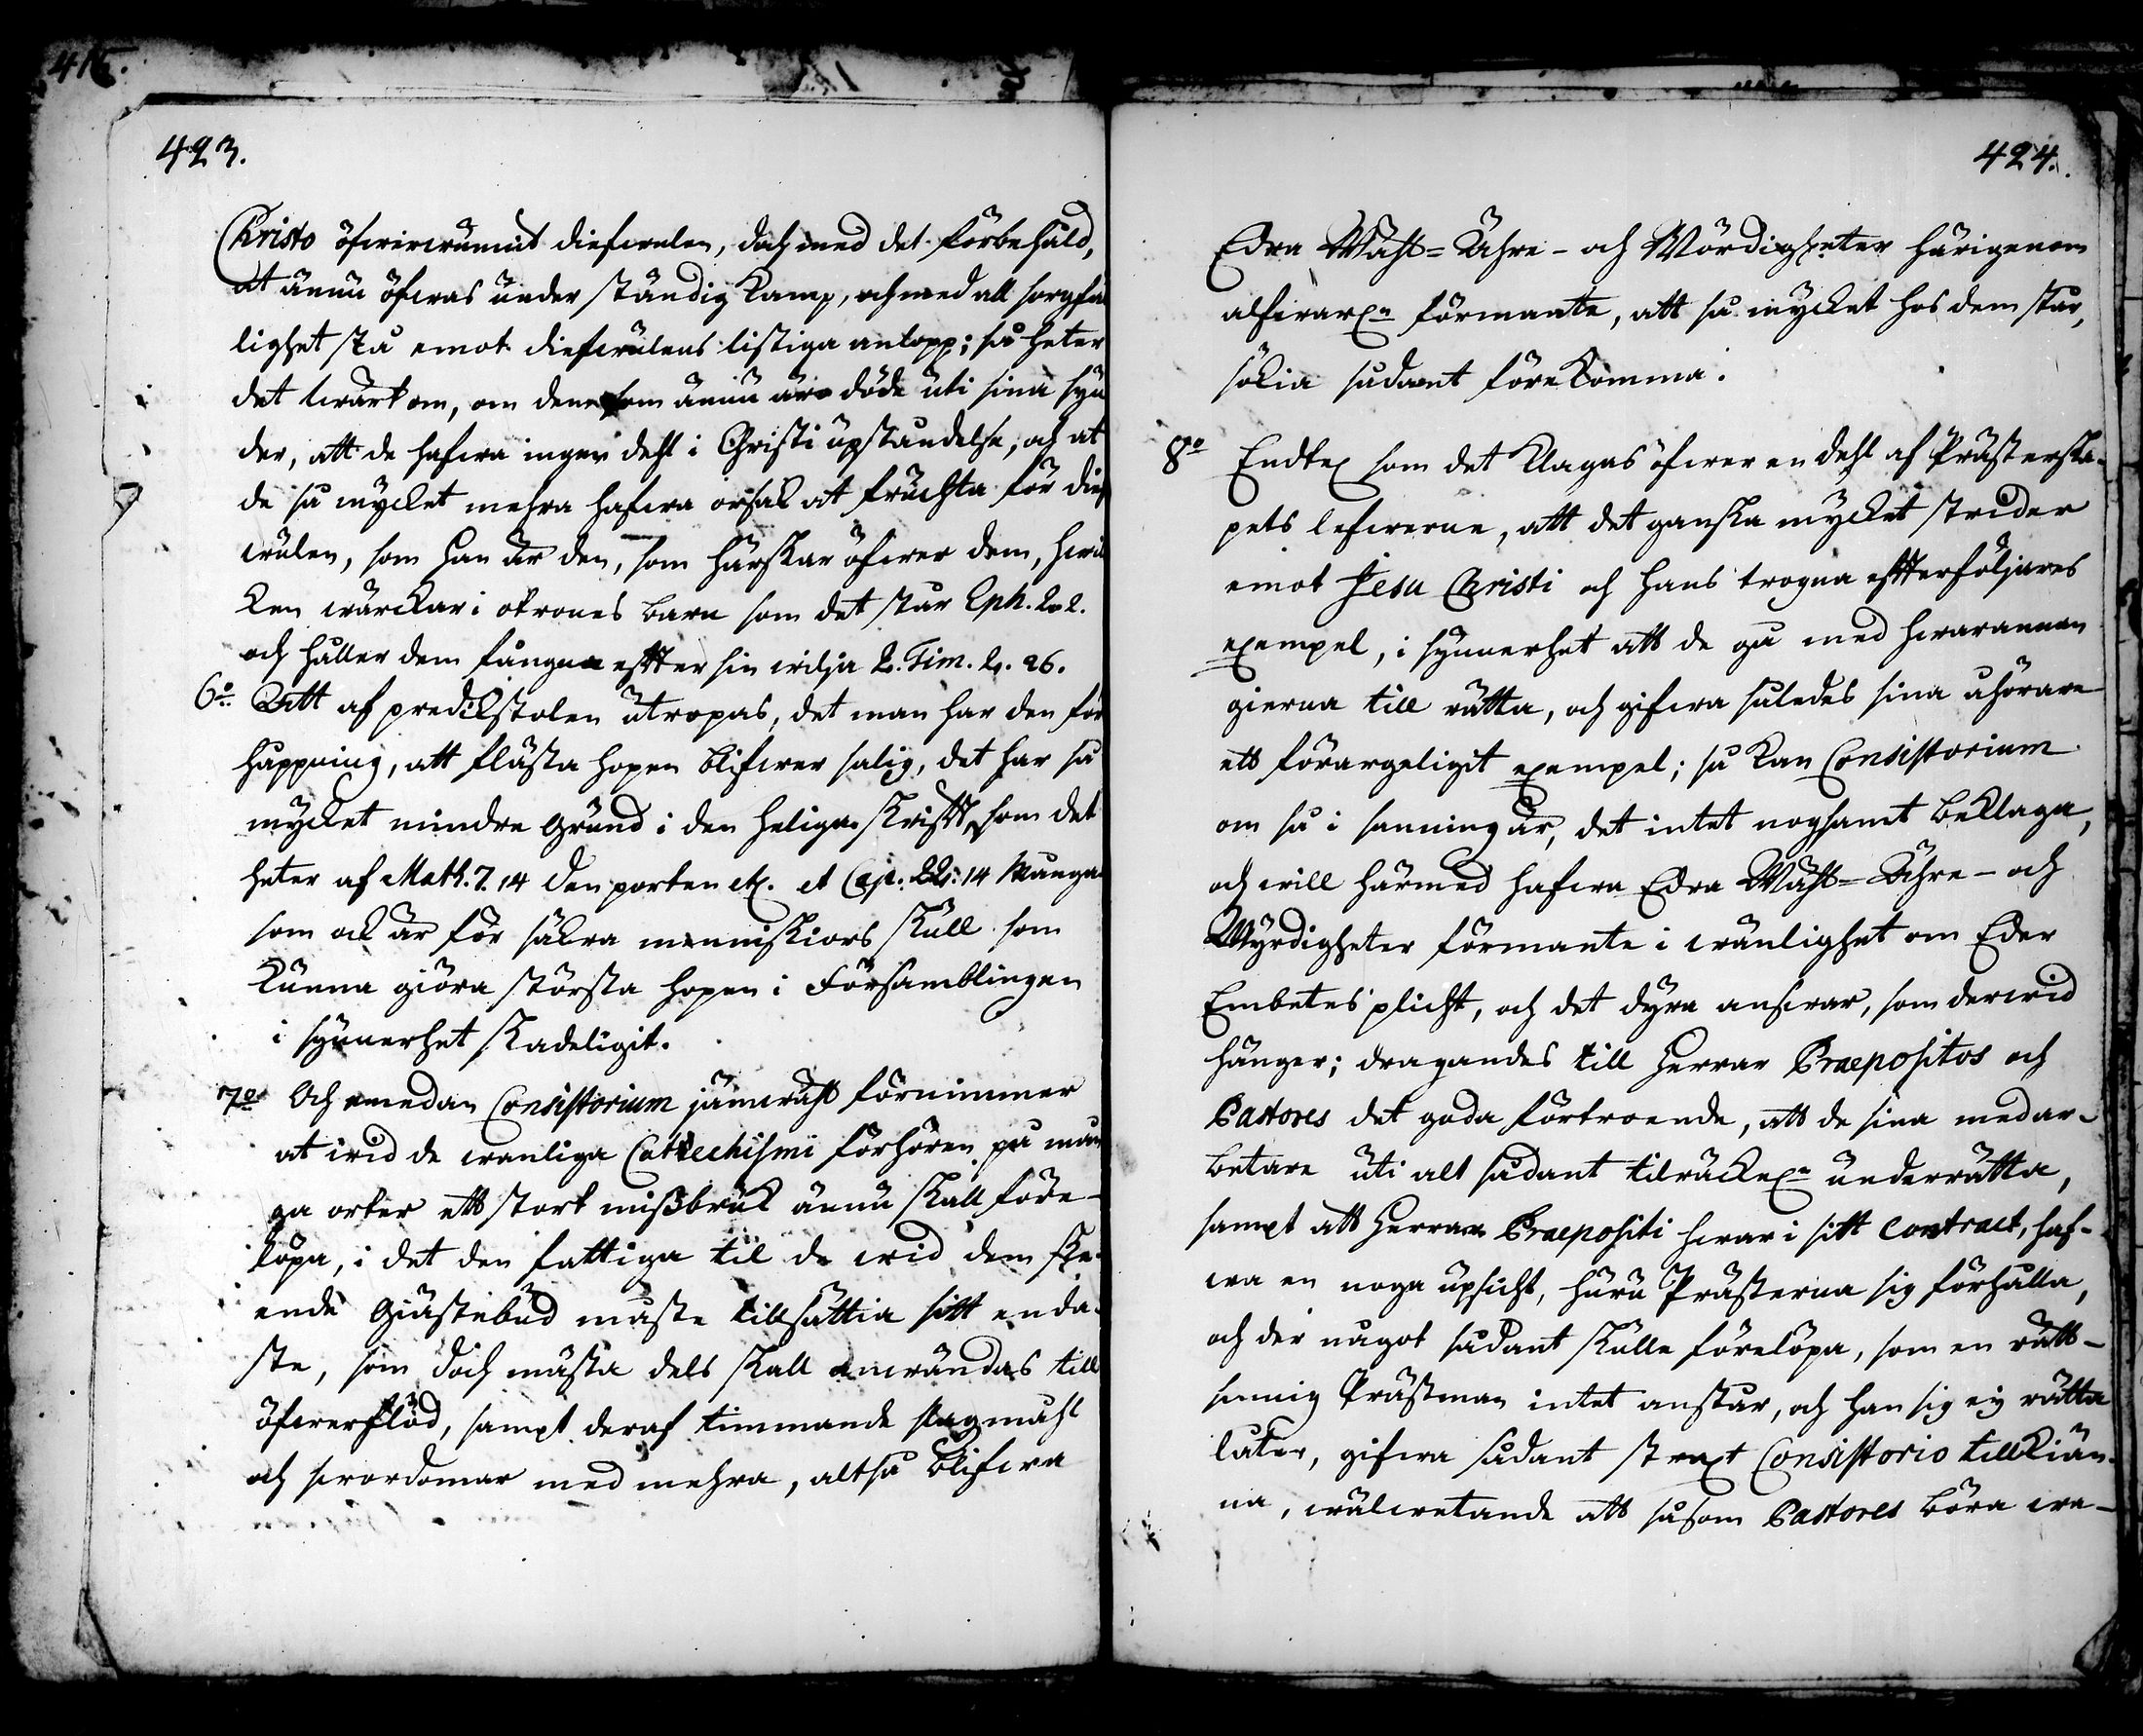 423.
Christo öfwerwunnit diefwulen, doch med det förbehåld,
at ännu öfwas under ständig kamp, och med all sorgfäl
lighet stå emot diefwulens listiga anlopp; så heter
det twärt om, om dem som ännu äro döde uti sina syn
der, att de hafwa ingen dehl i Christi upståndelse, och at
de så mycket mehra hafwa orsak at fruchta för dief
wulen, som han är den, som härskar öfwer dem, hwil
ken wärckar i otrones barn som det står Eph. 2. 2.
och håller dem fångna effter sin wilja 2. Tim. 2. 26.
6o Att af predikstolen utropas, det man har den för
håppning, att flästa hopen blifwer salig, det har så
mycket mindre grund i den heliga Skrifft, som det
heter af Math. 7. 14 den porten etc. et Cap. 22: 14 Många
som ock är för säkra menniskiors skull som
kunna giöra största hopen i Församblingen
i synnerhet skadeligit.
7o Och emedan Consistorium jämwähl förnimmer
at wid de wanliga Catechismi förhören på mån
ga orter ett stort missbruk ännu skall före-
löpa, i det den fattiga til de wid dem ske-
ende Giästebud måste tillsättia sitt enda-
ste, som doch mästa dels skall anwändas till
öfwerflöd, sampt deraf timmande slagmåhl
och swordomar med mehra, altså blifwa
424.
Edra Wähl-Ähre- och Wördigheter härigenom
alfwarln förmante, att så mycket hos dem står,
sökia sådant förekomma.
8o Endtel som det klagas öfwer en dehl af Prästerska-
pets lefwerne, att det ganska mycket strider
emot Jesu Christi och hans trogna effterföljares
exempel, i synnerhet att de gå med hwarannan
gierna till rätta, och gifwa således sina åhörare
ett förargeligit exempel; så kan Consistorium
om så i sanning är, det intet nogsamt beklaga,
och will härmed hafwa Edra Wähl-Ähre- och
Wyrdigheter förmante i wänlighet om Eder
Embetes plicht, och det dyra answar, som derwid
hänger; dragandes till Herrar Praepositos och
Pastores det goda förtroende, att de sina medar-
betare uti alt sådant tilräckeln underrätta,
sampt att Herrar Praepositi hwar i sitt Contract, haf-
wa en noga upsicht, huru Prästerna sig förhålla,
och der något sådant skulle förelöpa, som en rätt-
sinnig Prästman intet anstår, och han sig ey rätta
låter, gifwa sådant strax Consistorio tillkiän-
na, wälwetande att såsom Pastores böra wa-